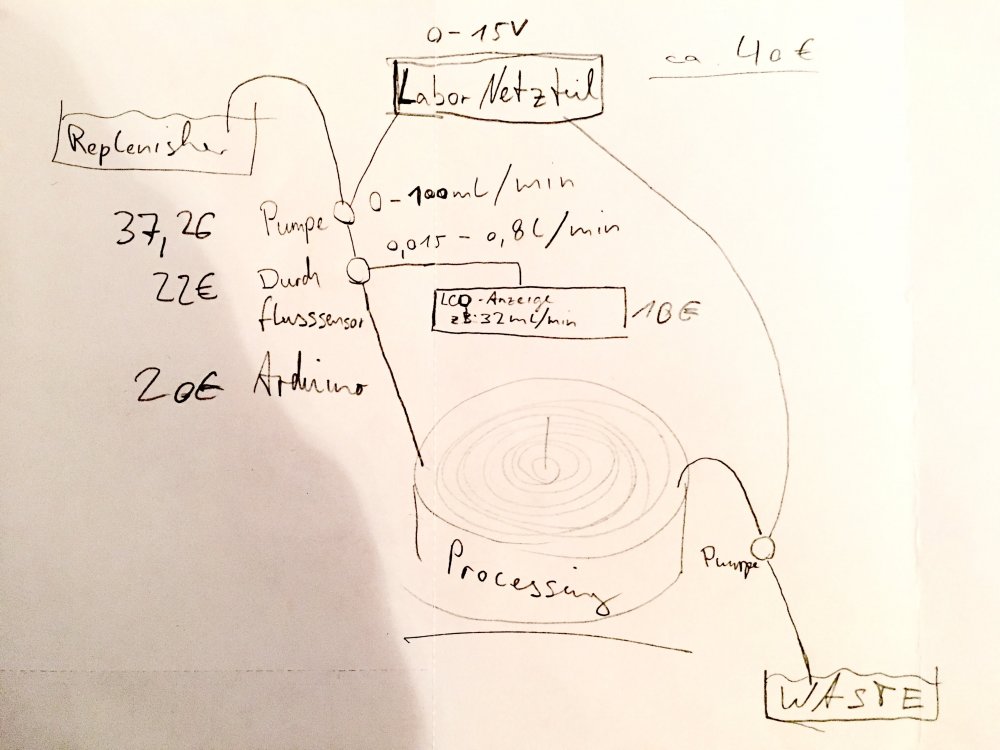 0-15V
ca. 40€
Labor Netzteil
Replenisher
0-100mL/min
37,2€ Pumpe
0,015 - 0,8L/min
22€ Durch
flusssensor
LCD-Anzeige
zB: 32mL/min
10€
20€ Arduino
Processing
Pumpe
WASTE